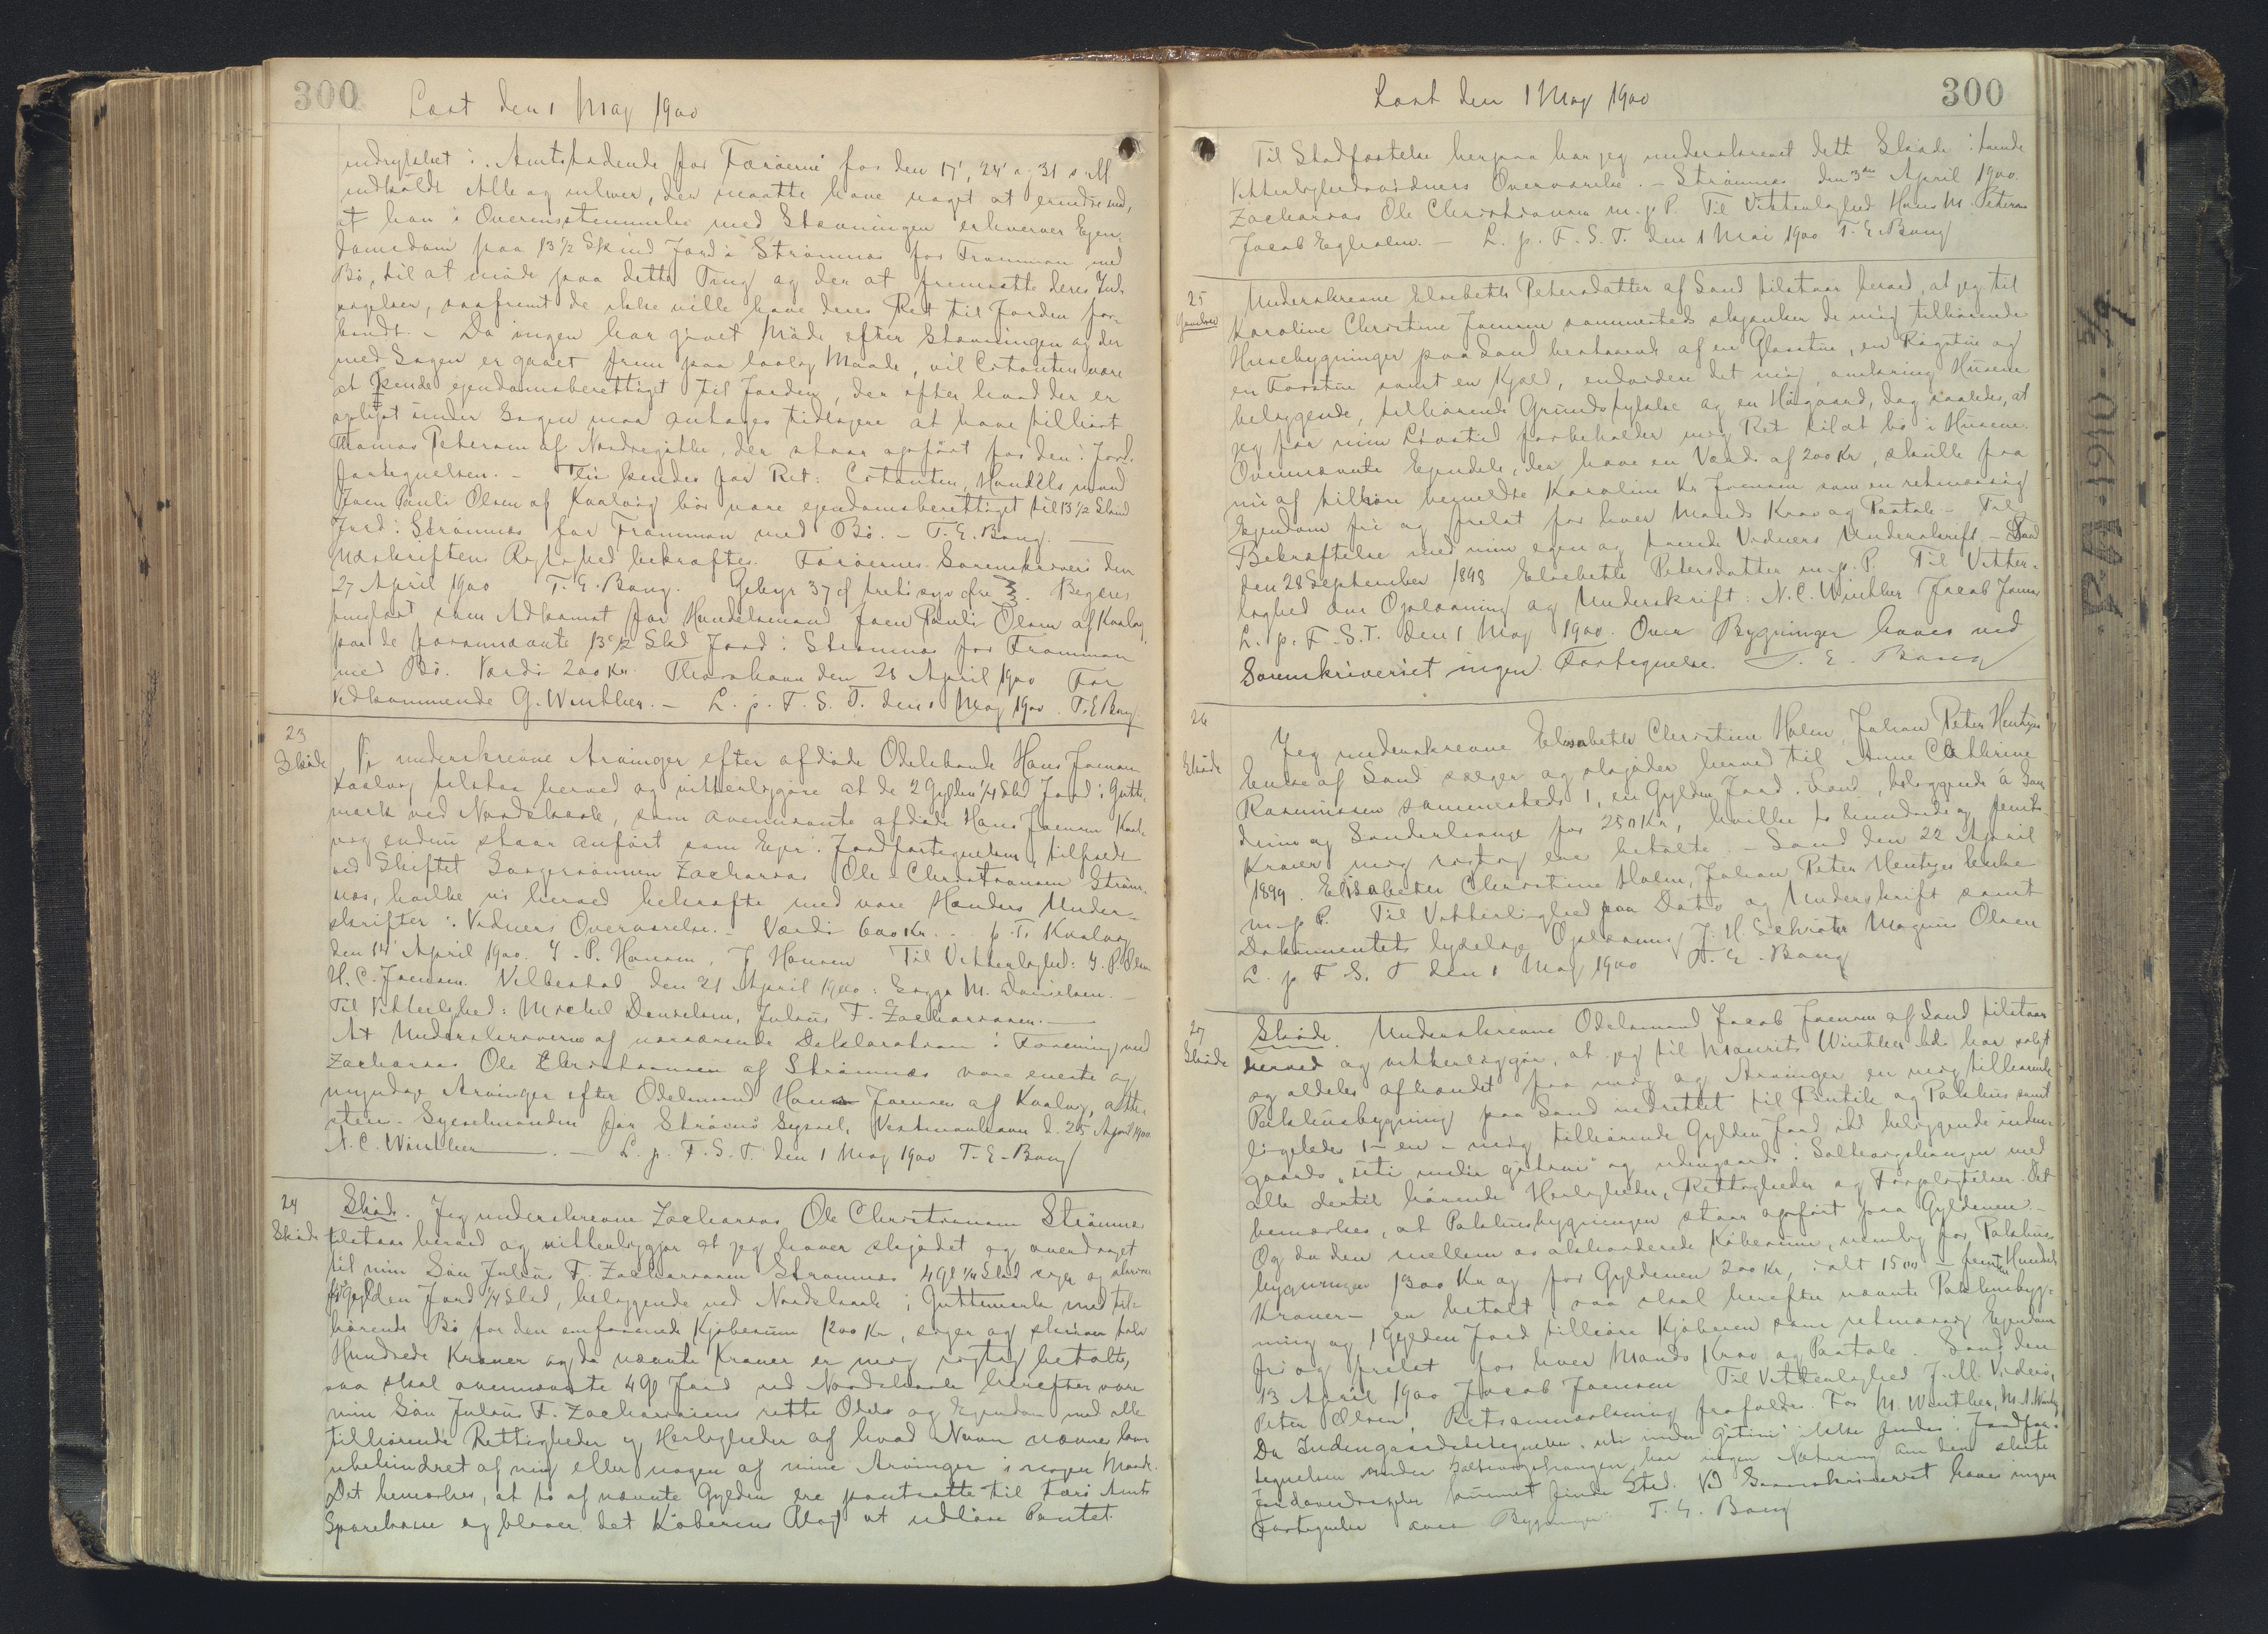 300 Læst den 1 Maj 1900
indrykket i Amtstidende for Færøerne for den 17', 24' og 31 s. M
indkaldt Alle og enhver, der maatte have noget at erindre imod,
at han i Overensstemmelse med Stævningen erhverver Ejen-
domsdom paa 13 1/2 Skind Jord i Strømnæs for Framman med
Bø, til at møde paa dette Ting og der at fremsætte deres Ind-
sigelser, saafremt de ikke ville have deres Ret til Jorden for-
brudt. - Da ingen har givet Møde efter Stævningen og der
med Sagen er gaaet frem paa lovlig Maade, vil Citanten være
at kjende ejendomsberettiget til Jorden, der efter hvad der er
oplyst under Sagen maa antages tidligere at have tilhørt
Thomas Petersen af Nordregøtte, der staar opført for den i Jord-
fortegnelsen. - Thi kendes for Ret: Citanten, Handelsmand
Joen Pauli Olsen af Kvalvig bør være ejendomsberettiget til 13 1/2 Skind
Jord i Strømnæs for Framman med Bø. - T. E. Bang.
Udskriftens Rigtighed bekræftes. Færøernes Sorenskriveri den
27 April 1900 T. E. Bang. Gebyr 37 ø tretisyv Øre. Begæres
tinglæst som Adkomst for Handelsmand Joen Pauli Olsen af Kvalvig
paa de forannævnte 13 1/2 Skd Jord i Strømnæs for Framman
med Bø. Værdi 200 Kr. Thorshavn den 28 April 1900 For
Vedkommende G. Winther. - L. p. F. S. T. den 1 Maj 1900. T. E Bang
23
Skøde Vi underskrevne Arvinger efter afdøde Odelsbonde Hans Joensen
Kvalvig tilstaa herved og vitterliggøre at de 2 Gylden 1/4 Skd Jord i Gutte-
mark ved Nordskaale, som ovennævnte afdøde Hans Joensen Kval-
vig endnu staar anført som Ejer i Jordfortegnelsen, tilfaldt
ved Skiftet Svigersønnen Zacharias Ole Christiansen Strøm-
næs, hvilke vi herved bekræfte med vore Hænders Under-
skrifter i Vidners Overværelse. - Værdi 600 Kr. - p. T. Kvalvig
den 14' April 1900. J. P. Hansen. J Hansen Til Vitterlighed: J. P. Olsen
H. C. Joensen. Velbestad den 21 April 1900: Sigga M. Danielsen. -
Til Vitterlighed: Michel Danielsen, Julius F. Zachariasen. -
At Underskriverne af nærværende Deklaration i Forening med
Zacharias Ole Christiansen af Strømnæs vare eneste og
myndige Arvinger efter Odelsmand Hans Joensen af Kvalvig, atte-
steres. Sysselmanden for Strømø Syssel, Vestmanhavn d. 25 April 1900
N. C. Winther. - L. p. F. S. T. den 1 Maj 1900 T. E. Bang
24
Skøde Skøde. Jeg underskrevne Zacharias Ole Christiansen Strømnæs
tilstaar herved og vitterliggjør at jeg haver skjødet og overdraget
til min Søn Julius F. Zachariasen Strømnæs 4 Gl 1/4 Skd siger og skriver
fire Gylden Jord 1/4 Skd, beliggende ved Nordskaale i Guttemark med til-
hørende Bø for den omforenede Kjøbesum 1200 Kr, siger og skriver tolv
Hundrede Kroner og da nævnte Kroner er mig rigtig betalte,
saa skal ovennævnte 4 Gl Jord ved Nordskaale herefter være
min Søn Julius F. Zachariasens rette Odel og Ejendom med alle
tilhørende Rettigheder og Herligheder af hvad Navn nævnes kan
ubehindret af mig eller nogen af mine Arvinger i nogen Maade.
Det bemærkes, at to af nævnte Gylden ere pantsatte til Færø Amts
Sparekasse og bliver det Køberens Pligt at udløse Pantet.
Læst den 1 Maj 1900 300
Til Stadfæstelse herpaa har jeg underskrevet dette Skøde i tvende
Vitterlighedsvidners Overværelse. - Strømnæs den 3die April 1900.
Zacharias Ole Christiansen m. p P. Til Vitterlighed Hans M. Petersen
Jacob Egholm. - L. p. F. S. T. den 1 Mai 1900 T. E. Bang
25
Gavebrev Underskrevne Elsebeth Petersdatter af Sand tilstaar herved, at jeg til
Karoline Christine Joensen sammesteds skjænker de mig tilhørende
Husebygninger paa Sand bestaaende af en Glasstue, en Røgstue og
en Forstue samt en Kjæld, endvidere det mig omkring Husene
beliggende, tilhørende Grundstykke og en Høgaard, dog saaledes, at
jeg for min Livstid forbeholder mig Ret til at bo i Husene.
Ovennævnte Ejendele, der have en Værdi af 200 Kr, skulle fra
nu af tilhøre bemeldte Karoline Kr Joensen som en retmæssig
Ejendom fri og frelst for hver Mands Krav og Paatale - Til
Bekræftelse med min egen og tvende Vidners Underskrift. - Sand
den 28 September 1898 Elsebeth Petersdatter m. p. P. Til Vitter-
lighed om Oplæsning og Underskrift: N. C. Winther Jacob Joensen
L. p. F. S. T. den 1 Maj 1900. Over Bygninger haves ved
Sorenskriveriet ingen Fortegnelse. T. E. Bang
26
Skøde Jeg underskrevne Elisabeth Christine Holm, Johan Peter Hentzes
Enke af Sand sælger og skjøder herved til Anne Cathrine
Rasmussen sammesteds 1, en Gylden Jord i Sand, beliggende á
og Sonderhauge for 250 Kr, hvilke to hundrede og femti
Kroner mig rigtig ere betalte. - Sand den 22 April
1899. Elisabeth Christine Holm, Johan Peter Hentzes Enke
m. p P. Til Vitterlighed paa Dato og Underskrift samt
Dokumentets lydelige Oplæsning J. H Schrøter Magnus Olsen
L. p F. S. T den 1 Maj 1900 T. E. Bang
27
Skøde Skøde. Underskrevne Odelsmand Jacob Joensen af Sand tilstaar
herved og vitterliggør, at jeg til Mourits Winther har solgt
og aldeles afhændet fra mig og Arvinger en mig tilhørende
Pakhusbygning paa Sand indrettet til Butik og Pakhus samt
ligeledes 1 - en - mig tilhørende Gylden Jord beliggende inden-
gaards "uti under gøtuni" og udengaards i Saltvigshaugen med
alle dertil hørende Herligheder, Rettigheder og Forpligtelser. Det
bemærkes, at Pakhusbygningen staar opført paa Gyldenen. -
Og da den mellem os akkorderede Købesum, nemlig for Pakhus-
bygningen 1300 Kr og for Gyldenen 200 Kr, ialt 1500 - femten Hundrede
Kroner - er betalt saa skal herefter nævnte Pakhusbyg-
ning og 1 Gylden Jord tilhøre Kjøberen som retmæssig Ejendom
fri og frelst for hver Mands Krav og Paatale. Sand den
13 April 1900 Jacob Joensen Til Vitterlighed J. M. Viderø,
Peter Olsen. Retsanmærkning frafaldes. For M. Winther, M. A. Winther
Da Indengaardsbetegnelsen "uti under Gøtuni" ikke findes i Jordfor-
tegnelsen under Saltvigshaugen, har ingen Notering om den skete
Jordoverdragelse kunnet finde Sted. Ved Sorenskriveriet haves ingen
Fortegnelse over Bygninger T. E. Bang